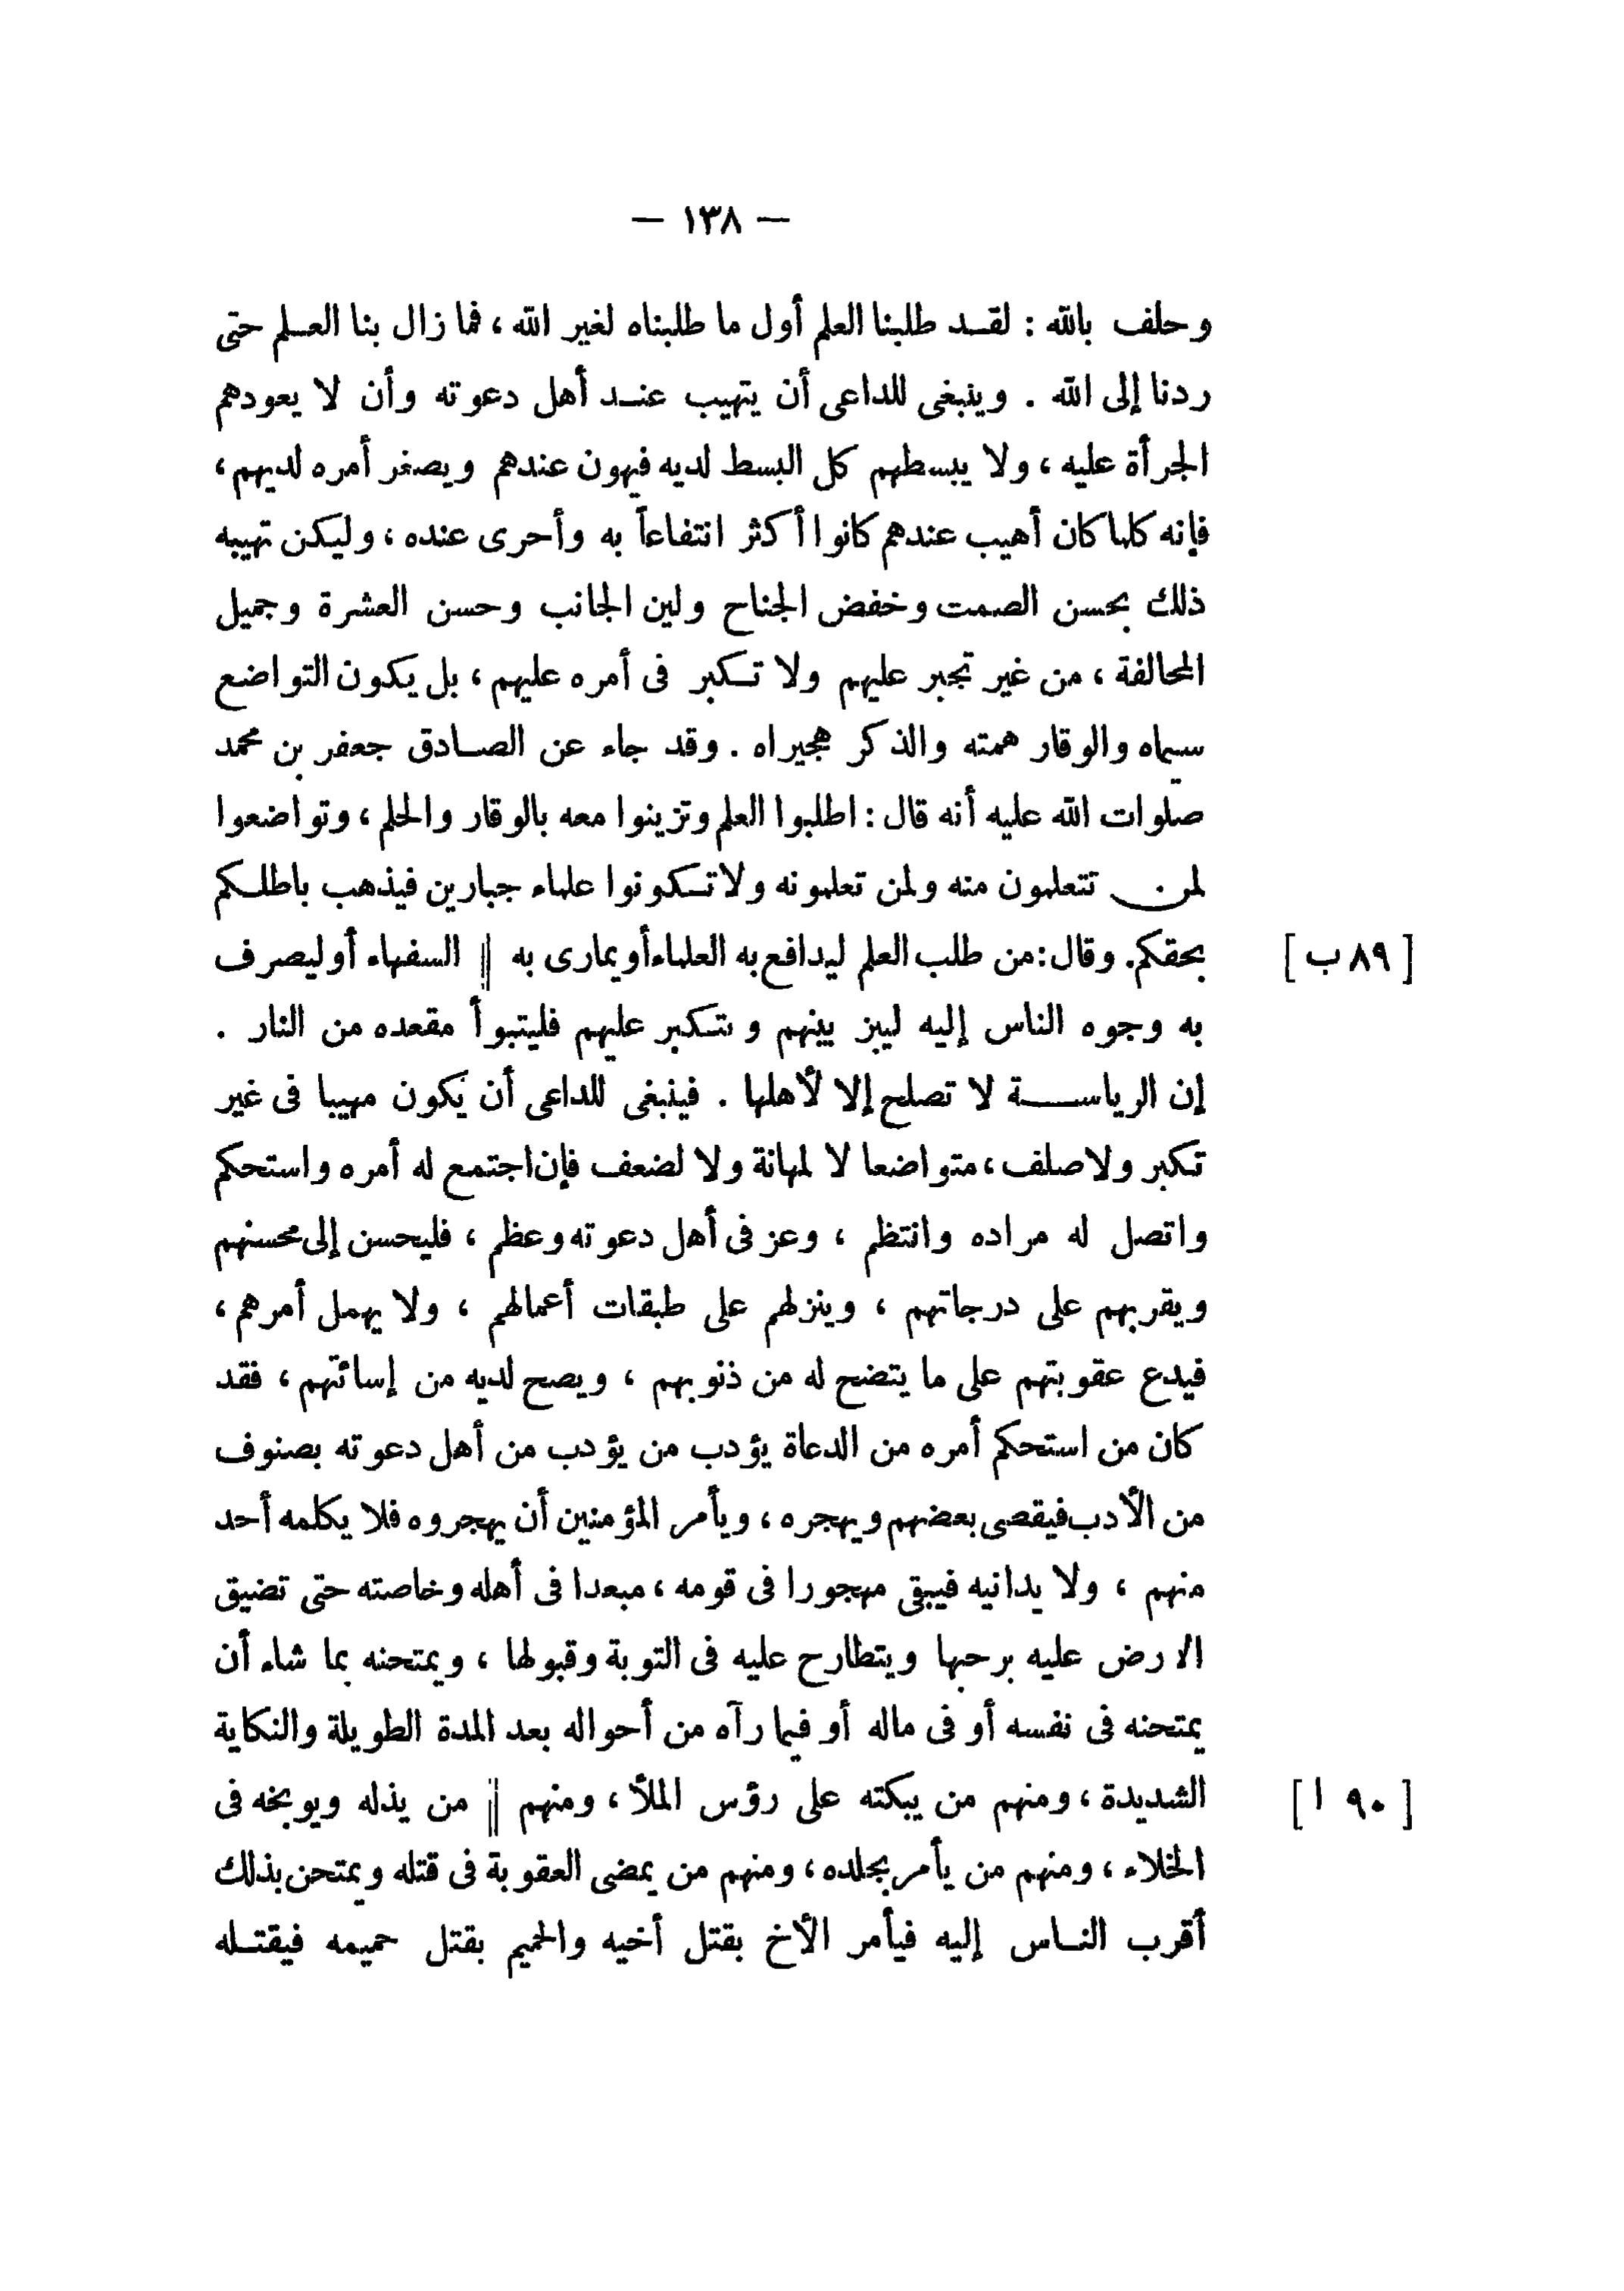 — ١٣٨ —
وحلف بالله : لقد طلبنا العلم أول ما طلبناه لغير الله ، فما زال بنا العلم حتى
ردنا إلى الله . وينبغى للداعى أن يتهيب عند أهل دعوته وأن لا يعودهم
الجرأة عليه ، ولا يبسطهم كل البسط لديه فيهون عندهم ويصغر أمره لديهم ،
فإنه كلما كان أهيب عندهم كانوا أكثر انتفاعاً به وأحرى عنده ، وليكن تهيبه
ذلك بحسن الصمت وخفض الجناح ولين الجانب وحسن العشرة وجميل
المحالفة ، من غير تجبر عليهم ولا تكبر فى أمره عليهم ، بل يكون التواضع
سيماه والوقار همته والذكر هجيراه . وقد جاء عن الصادق جعفر بن محمد
صلوات الله عليه أنه قال : اطلبوا العلم وتزينوا معه بالوقار والحلم ، وتواضعوا
لمن تتعلمون منه ولمن تعلمونه ولا تكونوا علماء جبارين فيذهب باطلكم
بحقكم . وقال : من طلب العلم ليدافع به العلماء أو يمارى به || السفهاء أو ليصرف [ ٨٩ ب ]
به وجوه الناس إليه ليبز بينهم وتتكبر عليهم فليتبوأ مقعده من النار .
إن الرياسة لا تصلح إلا لأهلها . فينبغى للداعى أن يكون مهيبا فى غير
تكبر ولا صلف ، متواضعا لا لمهانة ولا لضعف فإن اجتمع له أمره واستحكم
واتصل له مراده وانتظم ، وعز فى أهل دعوته وعظم ، فليحسن إلى محسنهم
ويقربهم على درجاتهم ، وينزلهم على طبقات أعمالهم ، ولا يهمل أمرهم ،
فيدع عقوبتهم على ما يتضح له من ذنوبهم ، ويصح لديه من إسائتهم ، فقد
كان من استحكم أمره من الدعاة يؤدب من يؤدب من أهل دعوته بصنوف
من الأدب فيقصى بعضهم ويهجره ، ويأمر المؤمنين أن يهجروه فلا يكلمه أحد
منهم ، ولا يدانيه فيبقى مهجورا فى قومه ، مبعدا فى أهله وخاصته حتى تضيق
الارض عليه برحبها ويتطارح عليه فى التوبة وقبولها ، ويمتحنه بما شاء أن
يمتحنه فى نفسه أو فى ماله أو فيما رآه من أحواله بعد المدة الطويلة والنكاية
الشديدة ، ومنهم من يبكته على رؤس الملأ ، ومنهم || من يذله ويوبخه فى [ ٩٠ ا ]
الخلاء ، ومنهم من يأمر بجلده ، ومنهم من يمضى العقوبة فى قتله ويمتحن بذلك
أقرب الناس إليه فيأمر الأخ بقتل أخيه والحميم بقتل حميمه فيقتله